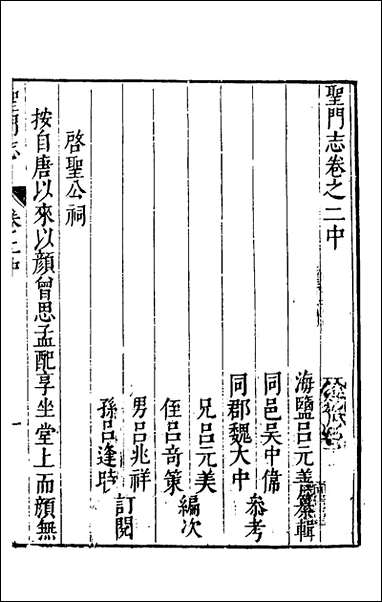 聖門志卷之二中
海鹽呂元善纂輯
同邑吳中偹
同郡魏大中
參考
兄呂元美
侄呂奇策
編次
男呂兆祥
孫呂逢時
訂閱
啓聖公祠
按自唐以來以顏曾思孟配享坐堂上而顏無
聖門志
卷之二中
一